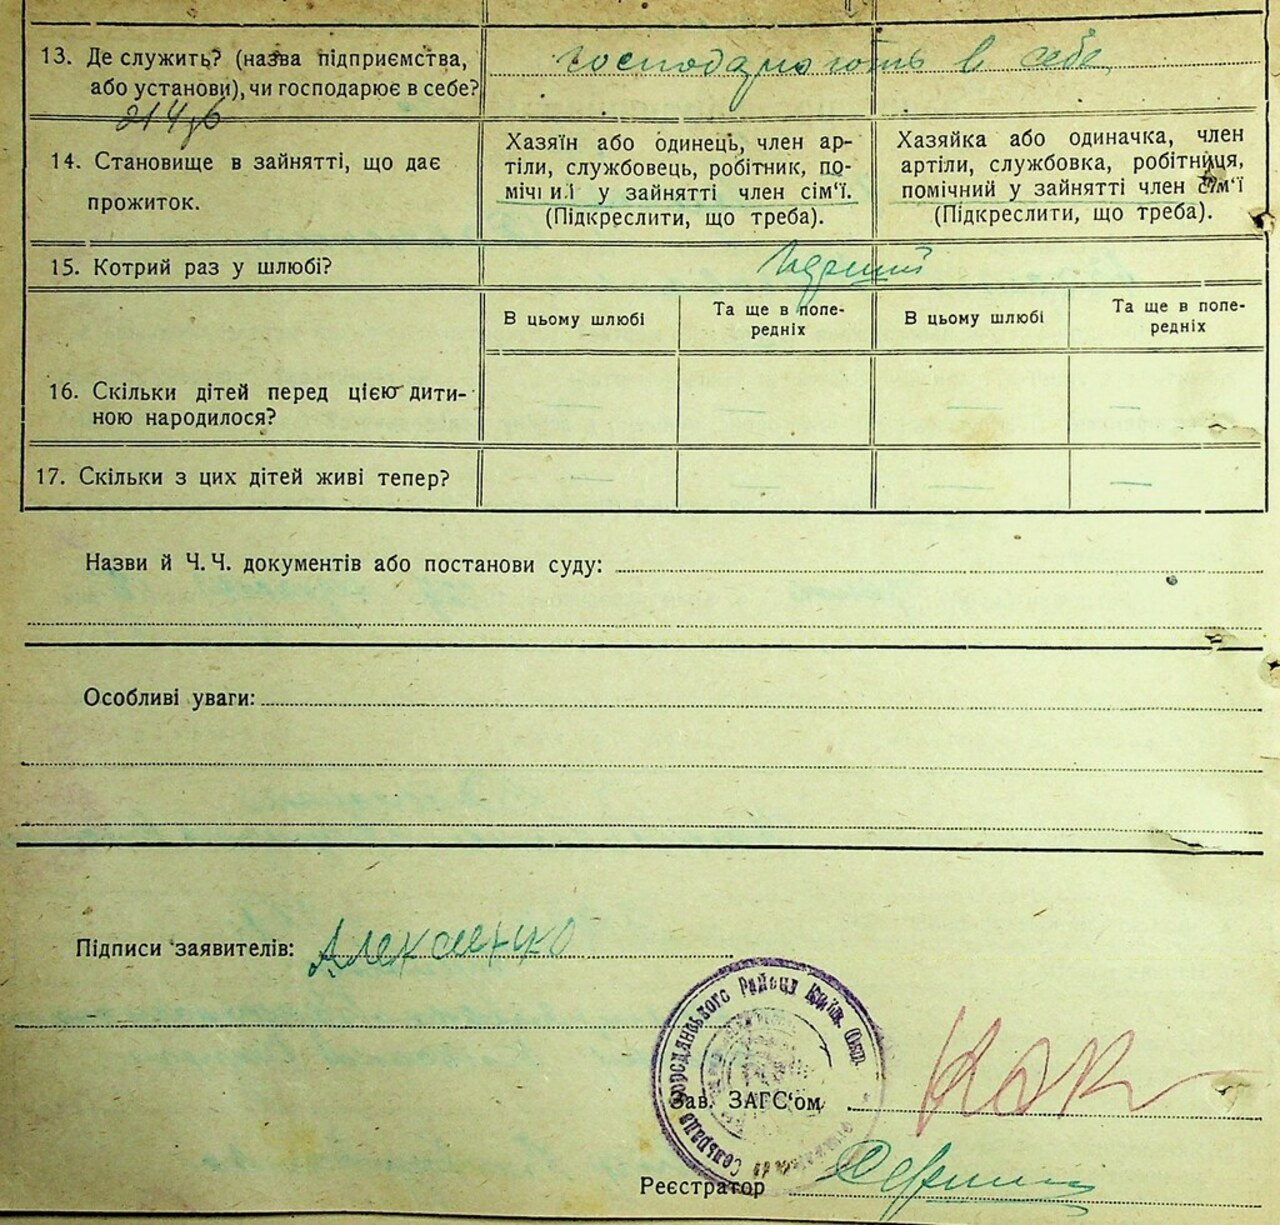 13. Де служить? (назва підприємства,
або установи), чи господарює в себе?
господарюють в себе
14. Становище в зайнятті, що дає
прожиток.
Хазяїн або одинець, член ар-
тіли, службовець, робітник, по-
мічний у зайнятті член сім'ї.
(Підкреслити, що треба).
Хазяйка або одиначка, член
артіли, службовка, робітниця,
помічний у зайнятті член сім'ї
(Підкреслити, що треба).
15. Котрий раз у шлюбі?
Перший
В цьому шлюбі
Та ще в попе-
редніх
В цьому шлюбі
Та ще в попе-
редніх
16. Скільки дітей перед цією дити-
ною народилося?
— — — —
17. Скільки з цих дітей живі тепер?
— — — —
Назви й Ч. Ч. документів або постанови суду:
Особливі уваги:
Підписи заявителів: Алексенко
Сельрада Бородянського Району Київ. Окр.
Зав. ЗАГС'ом
Реєстратор